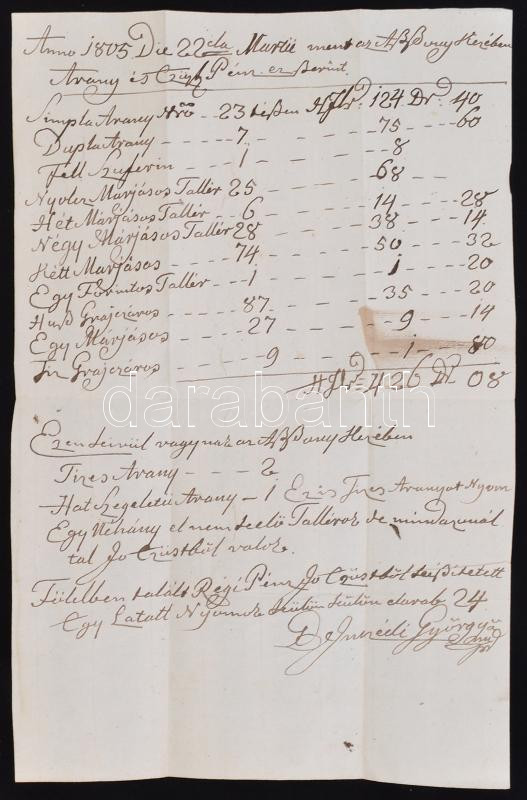 Anno 1805 Die 22da Martii ment az Aßßony Kezében
Arany és Ezüst Pénz e
Simpla Arany Nro -- 23 teßen Hflr: 124 Dr: 40
Dupla Arany ---- 7 ---- 75 -- 60
Fell Szuferin ---- 1 ---- 8
Nyolcz Márjásos Tallér 25 68 --
Hét Márjásos Tallér -- 6 ---- 14 ---- 28
Négy Márjásos Tallér 28 ---- 38 ---- 14
Kétt Marjásos ---- 74 ---- 50 ---- 32
Egy Forintos Tallér -- 1 ---- 1 ---- 20
Huß Grajczáros ---- 87 ---- 35 ---- 20
Egy Márjásos ---- 27 ---- 9 ---- 14
Tiz Grajczáros ---- 9 ---- 1 ---- 80
Hflr = 426 Dr. 08
darabanth
Ezen kivül vagynaz az Aßßony Kezében
Tizes Arany ---- 2
Hat Szegeletü Arany -- 1 Ez is Tizes Aranyat Nyom
Egy Néhány el nem kelö Tallérok de mindazonál
tal Jo Ezüstböl valok.
Földben talált Régi Pénz Jo Ezüstböl
Egy Latatt Nyomok darab 24
György